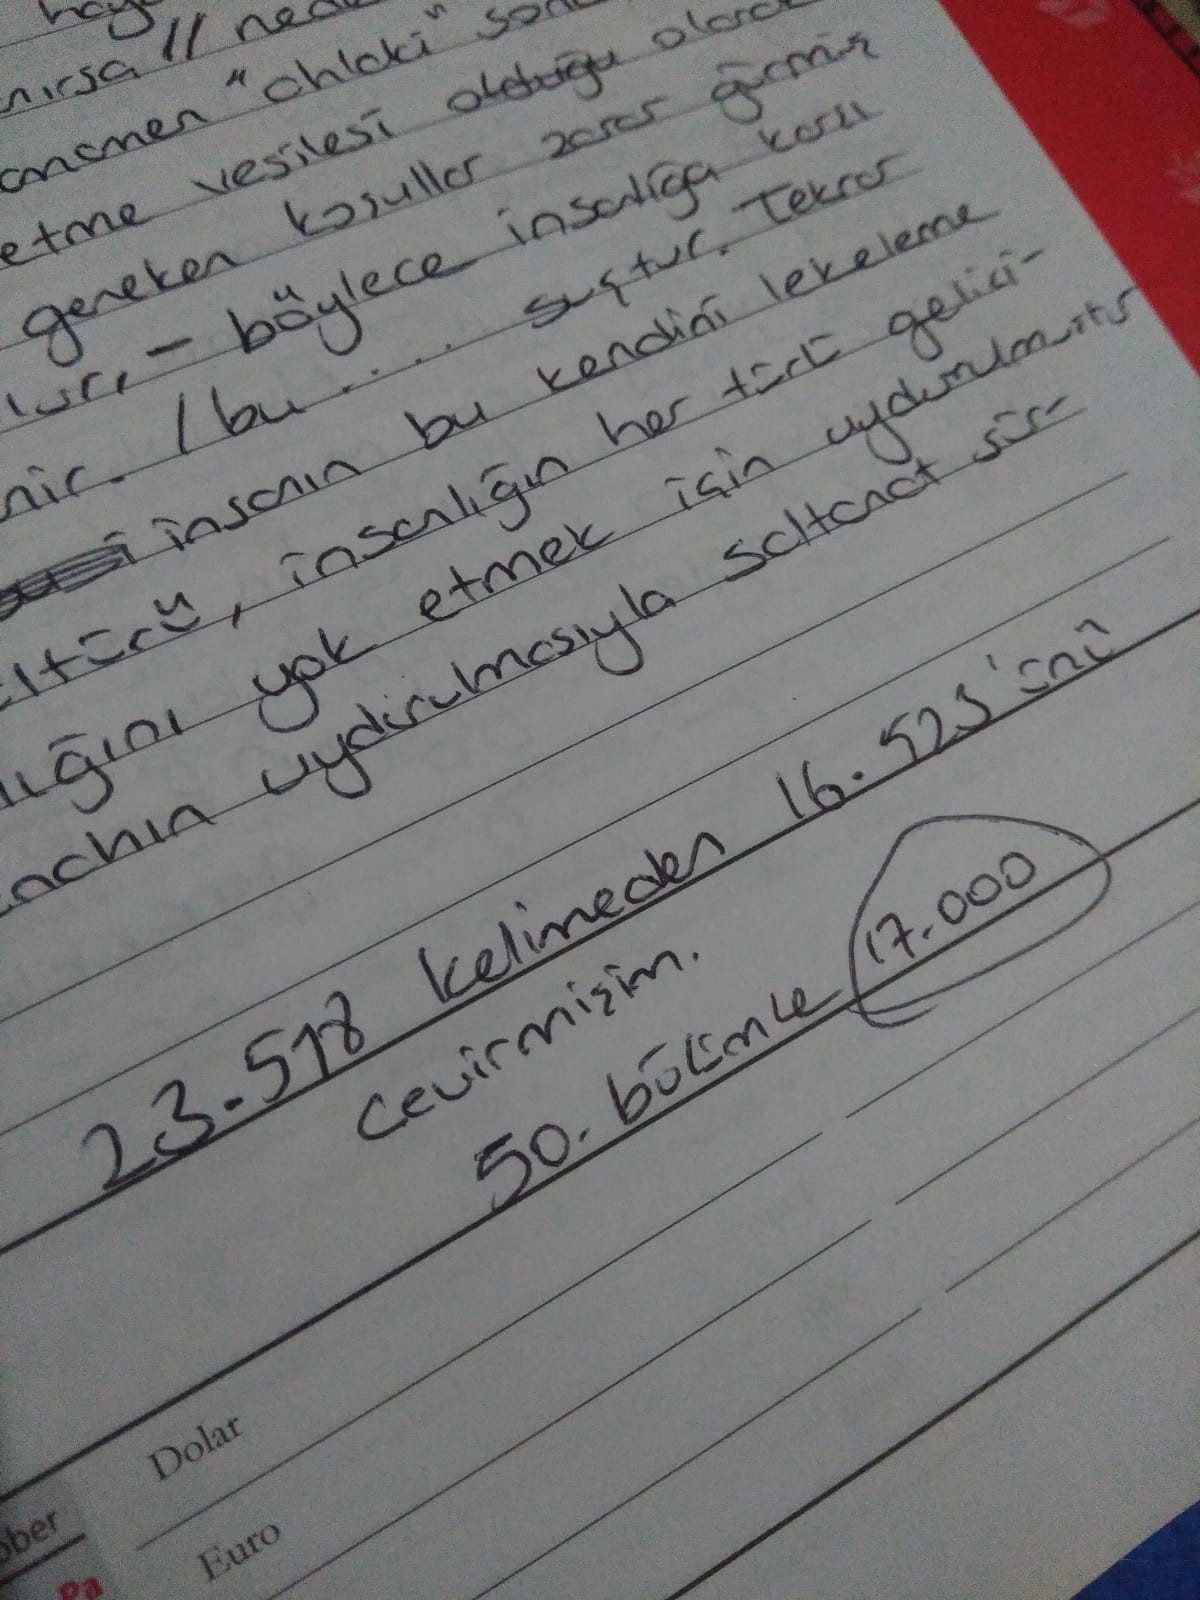 nırsa //
"ahlaki"
etme vesilesi olduğu olarak
gereken koşullar zarar görmüş
lur, - böylece insanlığa karşı
nir. / bu..... suçtur. Tekrar
insanın bu kendini lekeleme
ltürü, insanlığın her türlü gelici-
lığını yok etmek için uydurulmuştur
nchın uydurulmasıyla saltanat sür-
23.518 kelimeden 16.523'ünü
çevirmişim.
50. bölümle 17.000
Dolar
Euro
ober
Pa